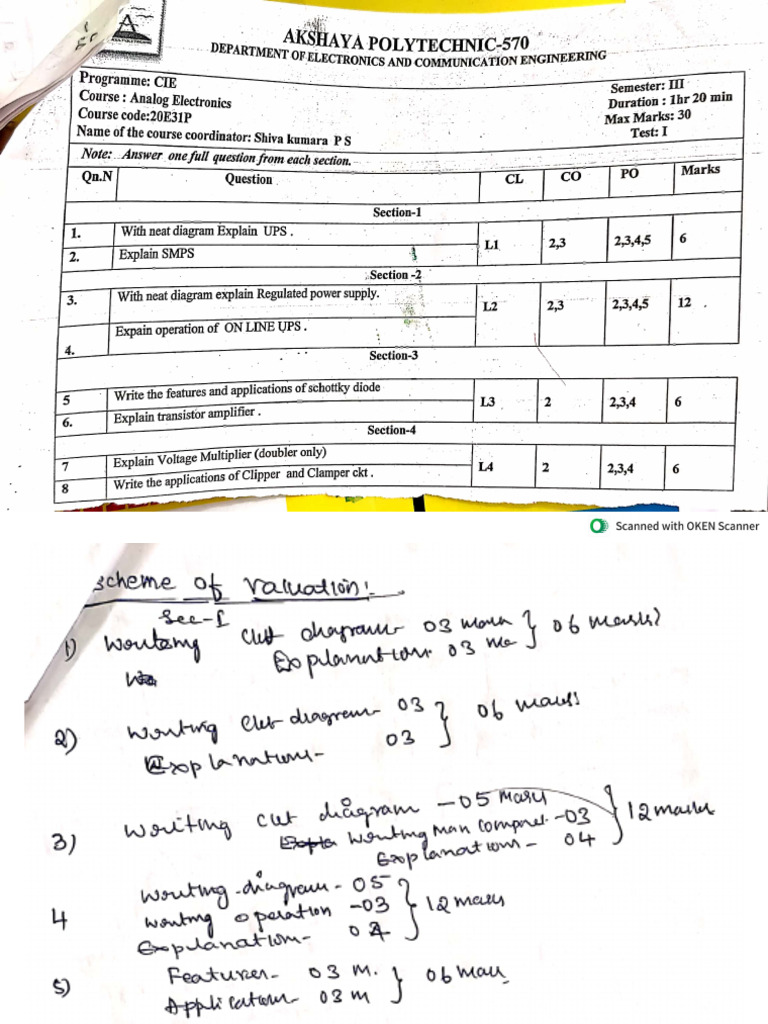 AKSHAYA POLYTECHNIC-570
DEPARTMENT OF ELECTRONICS AND COMMUNICATION ENGINEERING
Programme: CIE
Semester: III
Course : Analog Electronics
Duration : 1hr 20 min
Course code:20E31P
Max Marks: 30
Name of the course coordinator: Shiva kumara P S
Test: I
Note: Answer one full question from each section.
Qn.N Question CL CO PO Marks
Section-1
1. With neat diagram Explain UPS . L1 2,3 2,3,4,5 6
2. Explain SMPS
Section -2
3. With neat diagram explain Regulated power supply. L2 2,3 2,3,4,5 12 .
4. Expain operation of ON LINE UPS .
Section-3
5 Write the features and applications of schottky diode L3 2 2,3,4 6
6. Explain transistor amplifier .
Section-4
7 Explain Voltage Multiplier (doubler only) L4 2 2,3,4 6
8 Write the applications of Clipper and Clamper ckt .
Scanned with OKEN Scanner
scheme of valuation:
Sec-I
1) Writing ckt diagram 03 mark } 06 marks
Explanation. 03 ma
2) Writing ckt diagram- 03 } 06 marks
Explanation- 03
3) Writing ckt diagram -05 Mark } 12 marks
Writing -03
Explanation - 04
4 Writing diagram- 05 } 12 marks
Writing operation -03
Explanation- 04
5) Features- 03 m. } 06 mark
Application 03 m